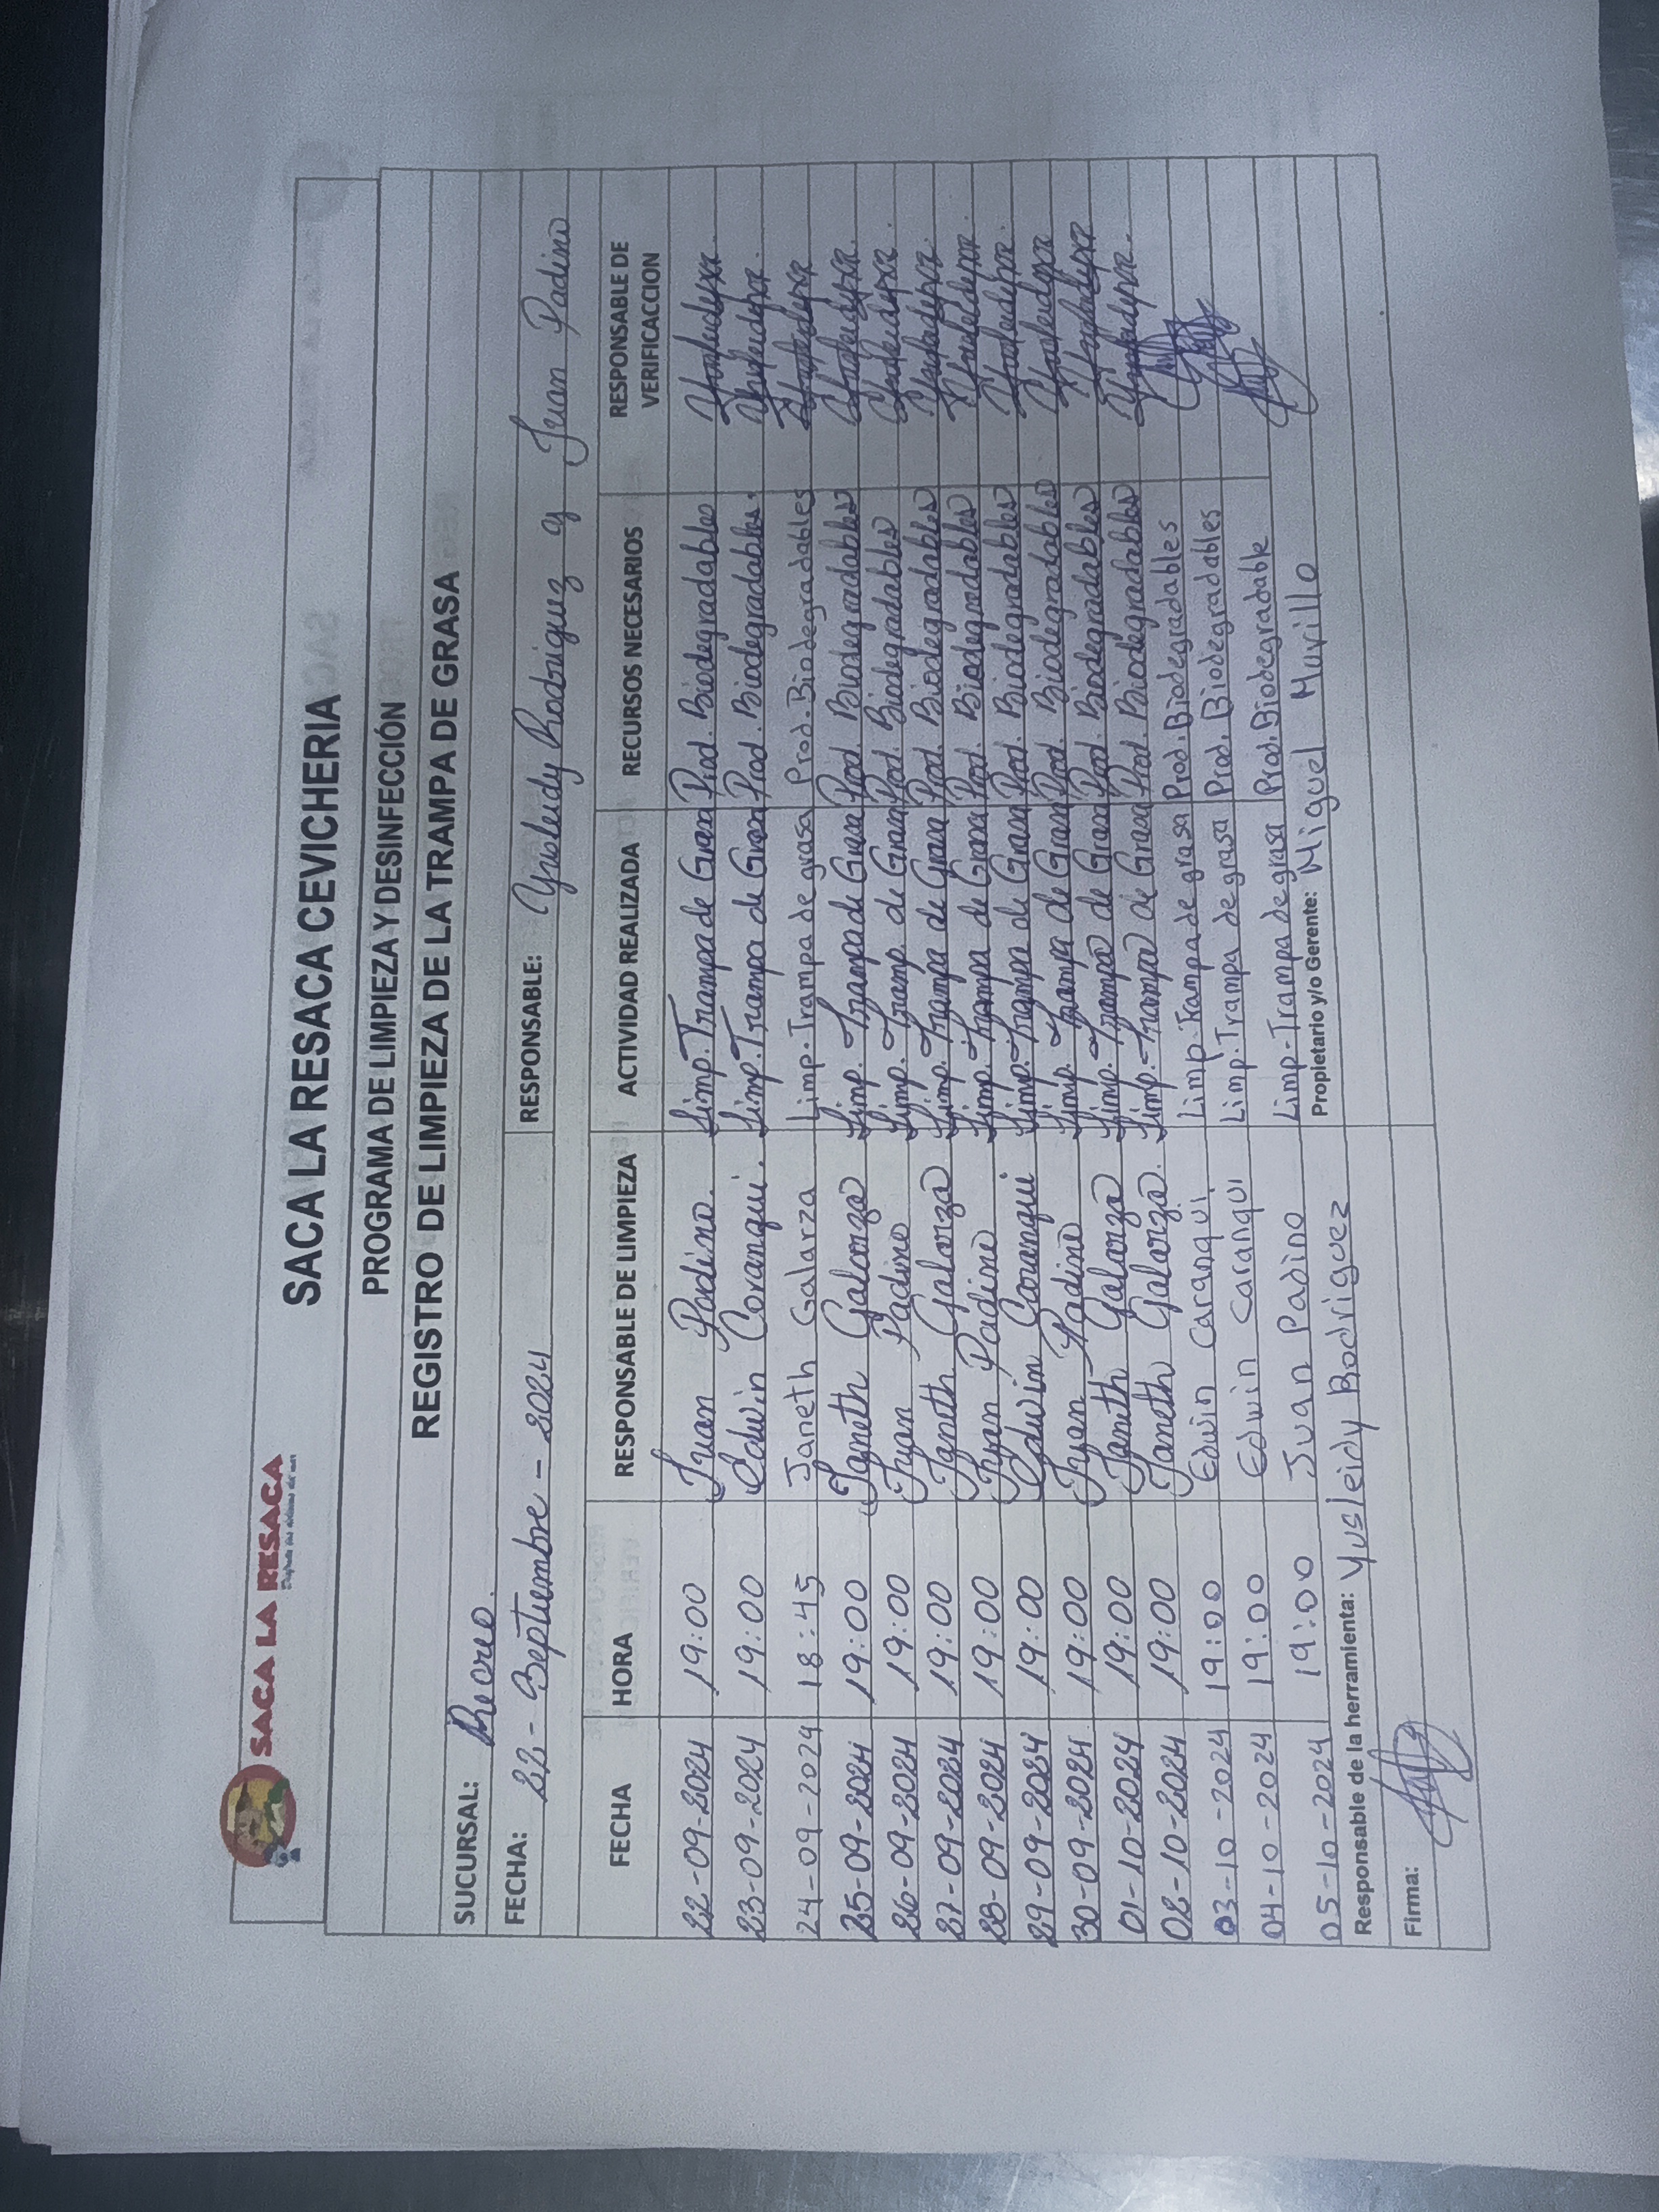 SACA LA RESACA
SACA LA RESACA CEVICHERIA
PROGRAMA DE LIMPIEZA Y DESINFECCIÓN
REGISTRO DE LIMPIEZA DE LA TRAMPA DE GRASA
SUCURSAL: Recreo.
FECHA: 22 - Septiembre - 2024 RESPONSABLE: Yusleidy Rodriguez y Juan Padino
FECHA HORA RESPONSABLE DE LIMPIEZA ACTIVIDAD REALIZADA RECURSOS NECESARIOS RESPONSABLE DE VERIFICACCION
22-09-2024 19:00 Juan Padino. Limp. Trampa de Grasa Prod. Biodegradables
23-09-2024 19:00 Edwin Caranqui. Limp. Trampa de Grasa Prod. Biodegradables.
24-09-2024 18:45 Janeth Galarza Limp. Trampa de grasa Prod. Biodegradables
25-09-2024 19:00 Janeth Galarza Limp. Trampa de Grasa Prod. Biodegradables
26-09-2024 19:00 Juan Padino Limp. Tramp. de Grasa Prod. Biodegradables
27-09-2024 19:00 Janeth Galarza Limp. Trampa de Grasa Prod. Biodegradables
28-09-2024 19:00 Juan Padino Limp. Trampa de Grasa Prod. Biodegradables
29-09-2024 19:00 Edwin Caranqui Limp. Trampa de Grasa Prod. Biodegradables
30-09-2024 19:00 Juan Padino Limp. Trampa de Grasa Prod. Biodegradables
01-10-2024 19:00 Janeth Galarza Limp. Trampa de Grasa Prod. Biodegradables
02-10-2024 19:00 Janeth Galarza. Limp. Trampa de Grasa Prod. Biodegradables
03-10-2024 19:00 Edwin Caranqui Limp. Trampa de grasa Prod. Biodegradables
04-10-2024 19:00 Edwin Caranqui Limp. Trampa de grasa Prod. Biodegradables
05-10-2024 19:00 Juan Padino Limp. Trampa de grasa Prod. Biodegradable
Responsable de la herramienta: Yusleidy Rodriguez Propietario y/o Gerente: Miguel Murillo
Firma: